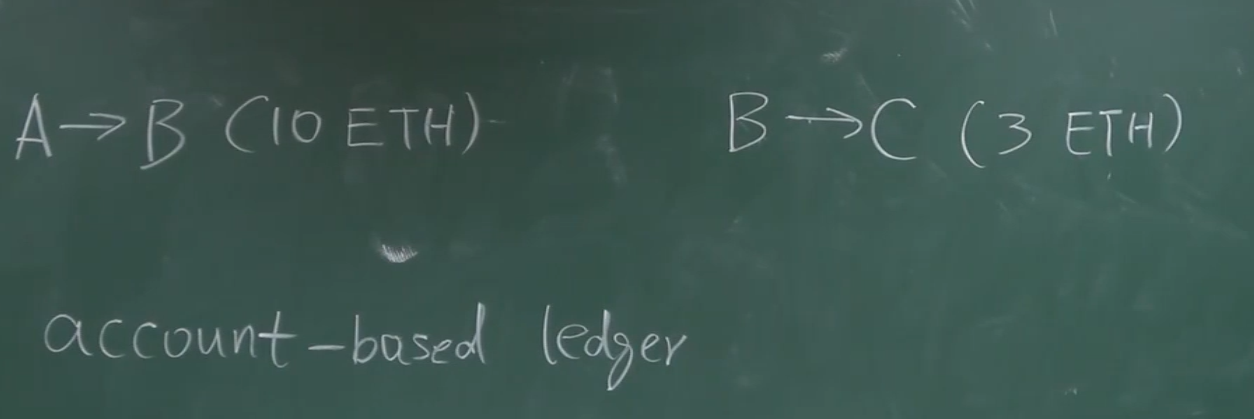 A→B (10 ETH) B→C (3 ETH)
account-based ledger